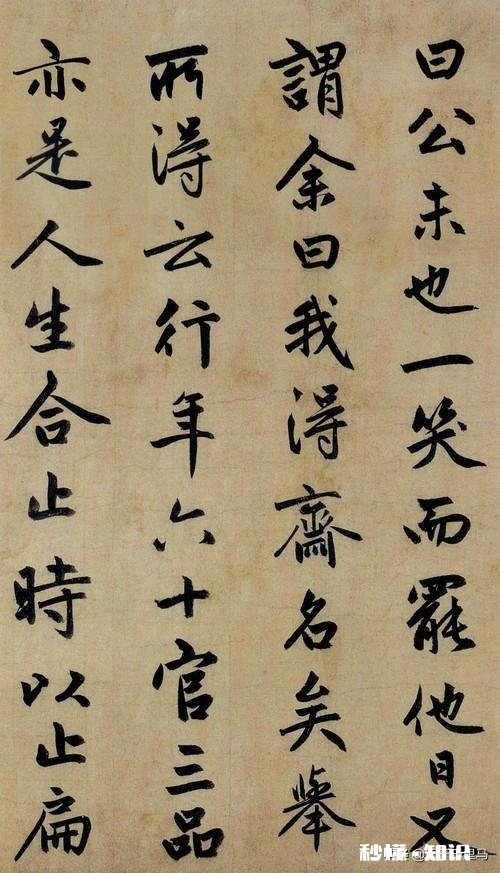 曰公未也一笑而罷他日又
謂余曰我得齋名矣舉
所得云行年六十官三品
亦是人生合止時以止扁
秒懂知识